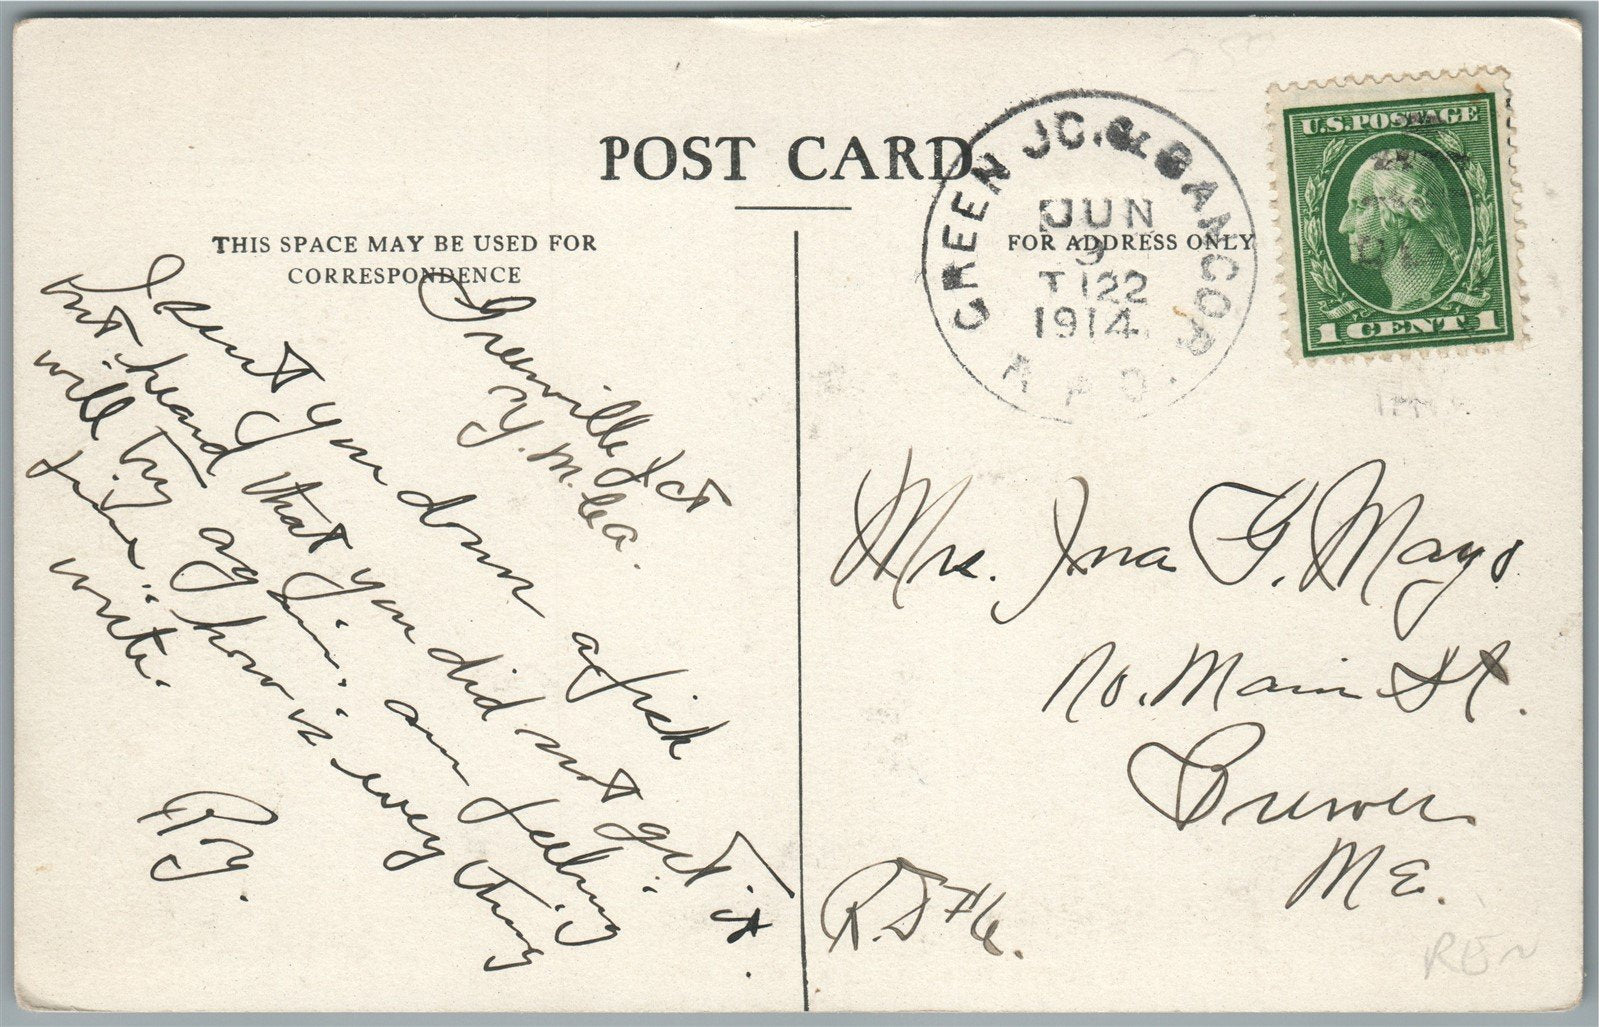 POST CARD
THIS SPACE MAY BE USED FOR
CORRESPONDENCE
FOR ADDRESS ONLY
GREEN JC. & BANGOR
JUN
9
T 122
1914
R.P.O.
U.S. POSTAGE
1 CENT 1
Greenville Jct
Y.M.C.A.
I sent you down a fish
but heard that you did not get it.
will try again. am feeling
fine. how is every thing
write.
Ry.
Mrs. Ina G. Mayo
No. Main St.
Brewer
ME.
R.F.#6.